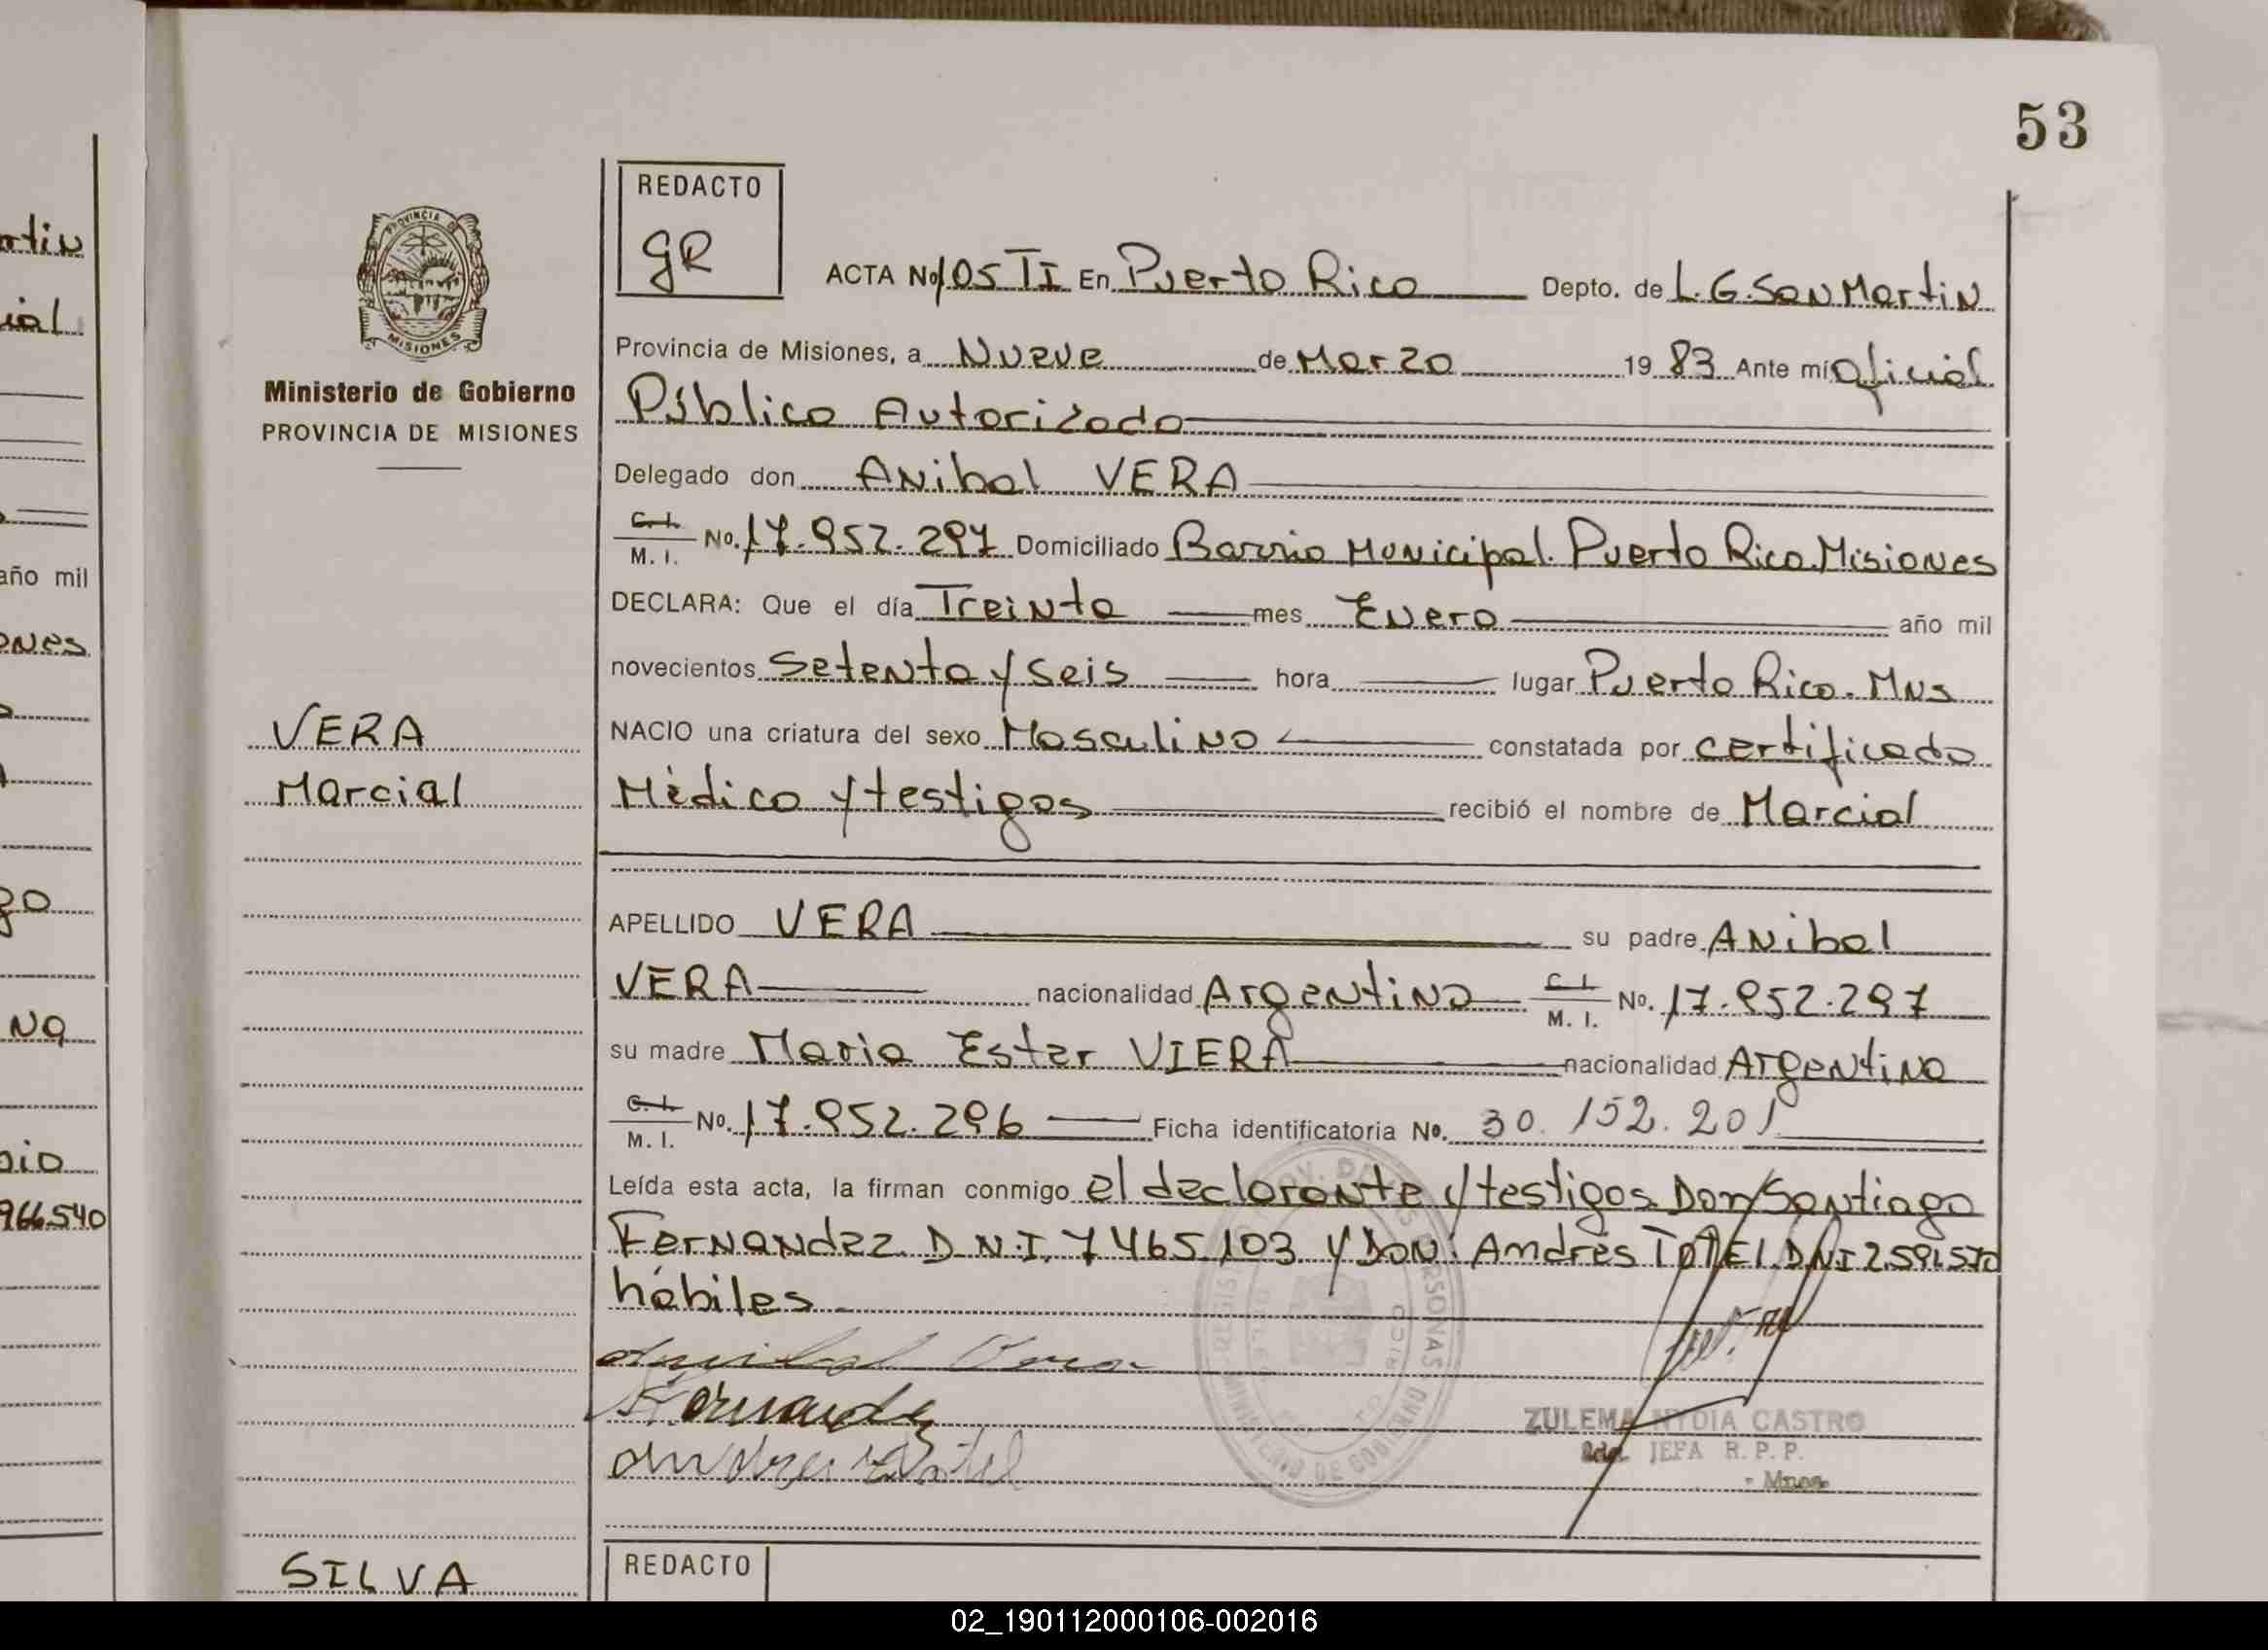 53
REDACTO
gR
ACTA No 105 TI En Puerto Rico Depto. de L. G. San Martin
Provincia de Misiones, a Nueve de Marzo 19 83 Ante mi Oficial
Ministerio de Gobierno
PROVINCIA DE MISIONES
Público Autorizado
Delegado don Anibal VERA
C. I. M. I. No. 17.952.297 Domiciliado Barrio Municipal. Puerto Rico. Misiones
DECLARA: Que el día Treinta mes Enero año mil
novecientos Setenta y seis hora lugar Puerto Rico. Mns
VERA
Marcial
NACIO una criatura del sexo Masculino constatada por certificado
Mèdico y testigos recibió el nombre de Marcial
APELLIDO VERA su padre Anibal
VERA nacionalidad Argentina C. I. M. I. No. 17.952.297
su madre Maria Ester VIERA nacionalidad Argentina
C. I. M. I. No. 17.952.296 Ficha identificatoria No. 30.152.201
Leída esta acta, la firman conmigo el declarante y testigos Don Santiago
Fernandez D.N.I. 7465103 y Don: Andrés D.N.I
hábiles
Anibal Vera
Fernandez
Andres
ZULEMA NYDIA CASTRO
JEFA R. P. P.
Mnes
SILVA
REDACTO
rtin
ial
año mil
ones
go
na
oio
966540
02_190112000106-002016